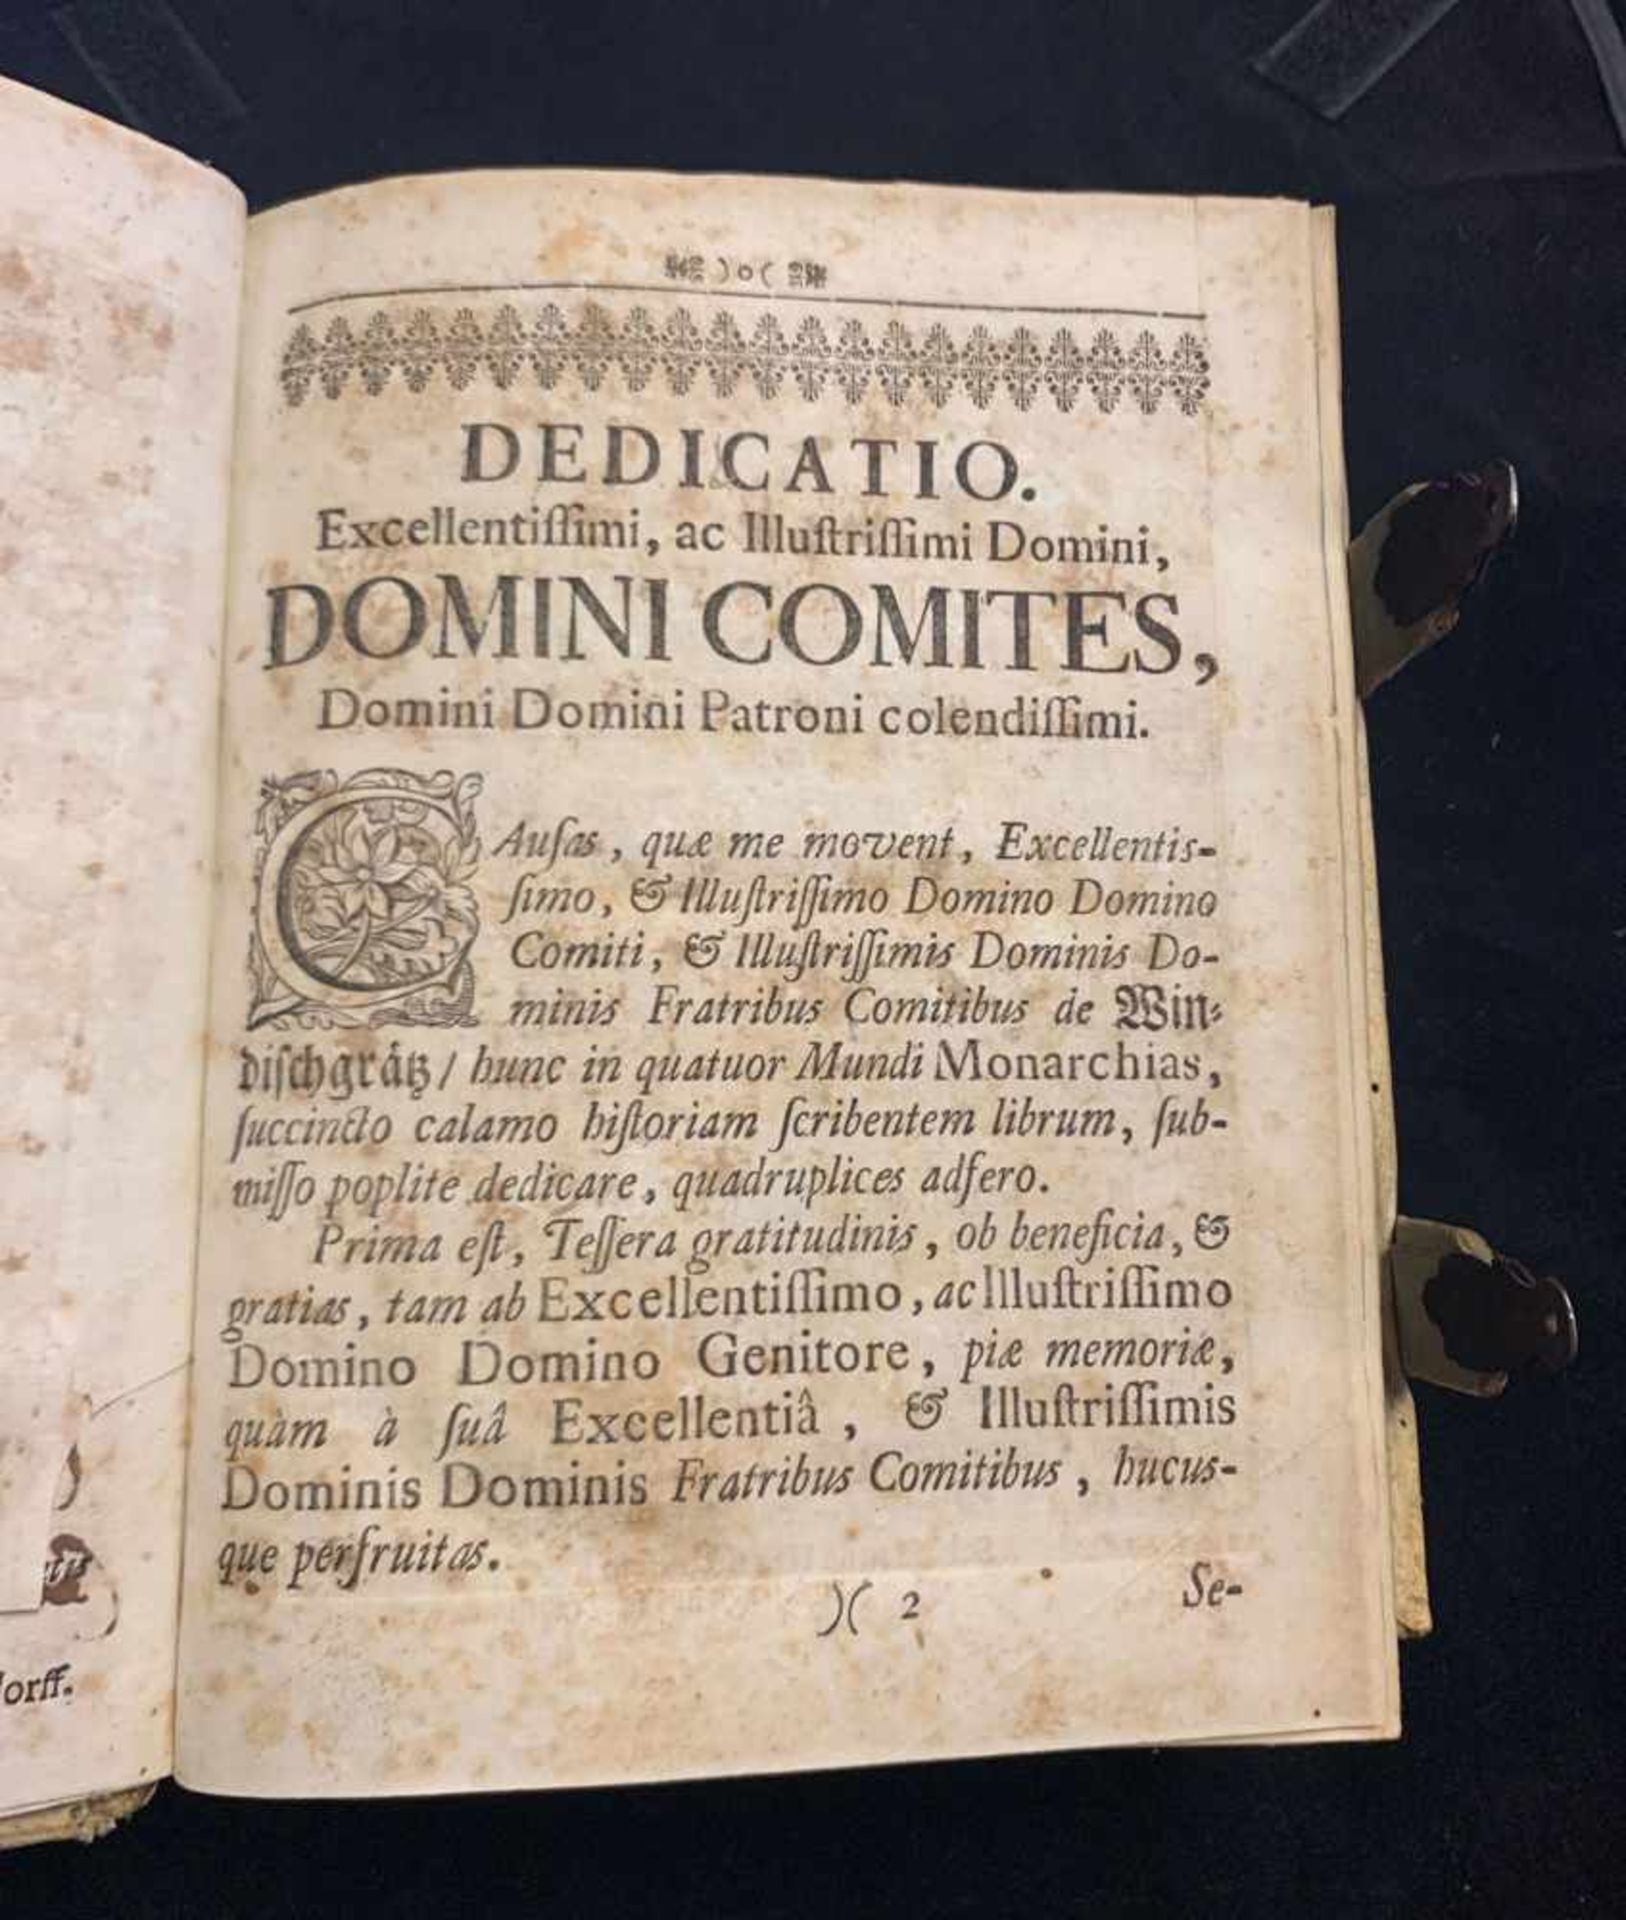 )o(
DEDICATIO.
Excellentiſſimi, ac Illuſtriſſimi Domini,
DOMINI COMITES,
Domini Domini Patroni colendiſſimi.
CAuſas, quæ me movent, Excellentis-
ſimo, & Illuſtriſſimo Domino Domino
Comiti, & Illuſtriſſimis Dominis Do-
minis Fratribus Comitibus de Win-
diſchgrätz / hunc in quatuor Mundi Monarchias,
ſuccincto calamo hiſtoriam ſcribentem librum, ſub-
miſſo poplite dedicare, quadruplices adfero.
Prima eſt, Teſſera gratitudinis, ob beneficia, &
gratias, tam ab Excellentiſſimo, ac Illuſtriſſimo
Domino Domino Genitore, piæ memoriæ,
quàm à ſuâ Excellentiâ, & Illuſtriſſimis
Dominis Dominis Fratribus Comitibus, hucus-
que perfruitas.
)( 2
Se-